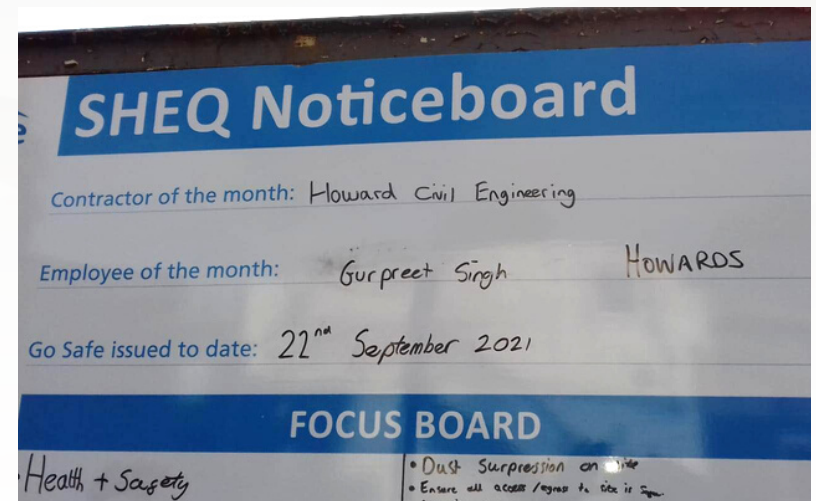 SHEQ Noticeboard
Contractor of the month: Howard Civil Engineering
Employee of the month: Gurpreet Singh HOWARDS
Go Safe issued to date: 22nd September 2021
FOCUS BOARD
Health + Safety
• Dust Surpression on site
• Ensure all access/egress to site is